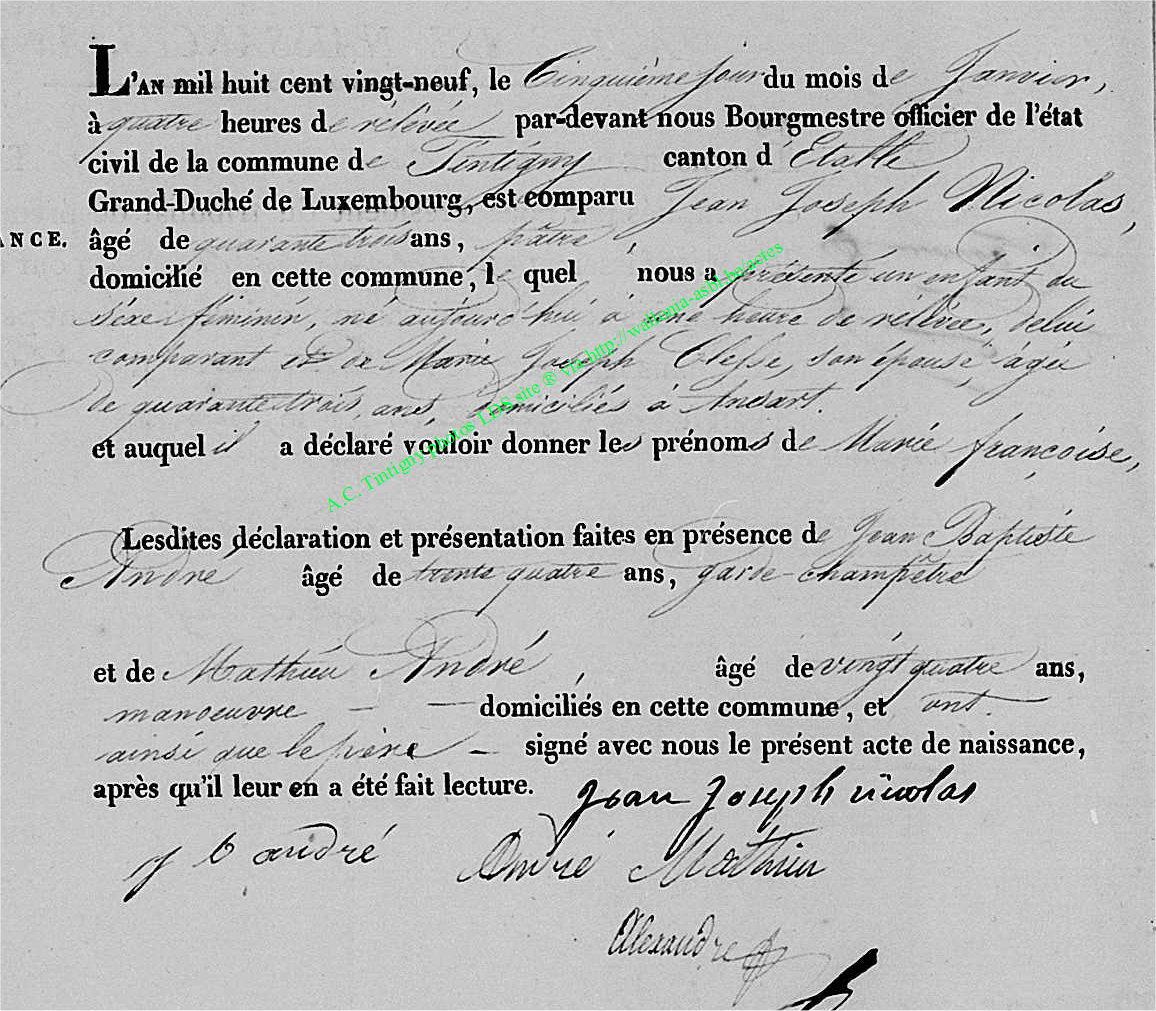 L'AN mil huit cent vingt-neuf, le Cinquième jour du mois de Janvier,
à quatre heures de rélévée par-devant nous Bourgmestre officier de l'état
civil de la commune de Tintigny canton d'Etalle
Grand-Duché de Luxembourg, est comparu Jean Joseph Nicolas,
ANCE. âgé de quarante trois ans, pâtre,
domicilié en cette commune, le quel nous a présenté un enfant du
séxe féminin, né aujourd'hui à une heure de rélévée, de lui
comparant et de Marie Joseph Clesse, son épouse agée
de quarante trois ans, domiciliés à Ansart.
et auquel il a déclaré vouloir donner les prénoms de Marie françoise,
Lesdites déclaration et présentation faites en présence de Jean Baptiste
André âgé de trente quatre ans, garde-champêtre
et de Mathieu André, âgé de vingt quatre ans,
manoeuvre - - domiciliés en cette commune, et ont. -
ainsi que le père - signé avec nous le présent acte de naissance,
après qu'il leur en a été fait lecture. Jean Joseph nicolas
j b andré André Mathieu
Alexandre
A.C. Tintigny photos LDS site ® via http://wallonia-asbl.be/actes